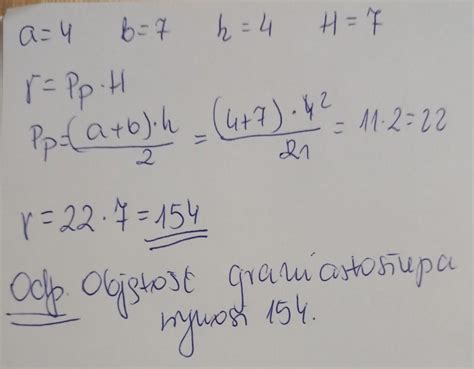 a=4 b=7 h=4 H=7
V=Pp·H
Pp=(a+b)·h/2 = (4+7)·4²/21 = 11·2=22
V=22·7=154
Odp. Objętość graniastosłupa
wynosi 154.